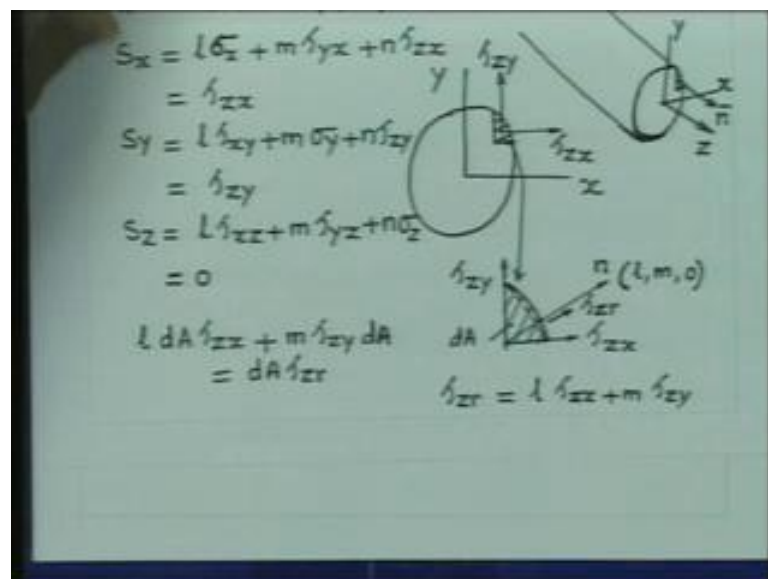 Sx = lσx + mτyx + nτzx
= τzx
Sy = lτxy + mσy + nτzy
= τzy
Sz = lτxz + mτyz + nσz
= 0
l dA τzx + m τzy dA
= dA τzr
y
τzy
τzx
x
y
x
n
z
τzy
n (l, m, 0)
τzr
dA
τzx
τzr = l τzx + m τzy